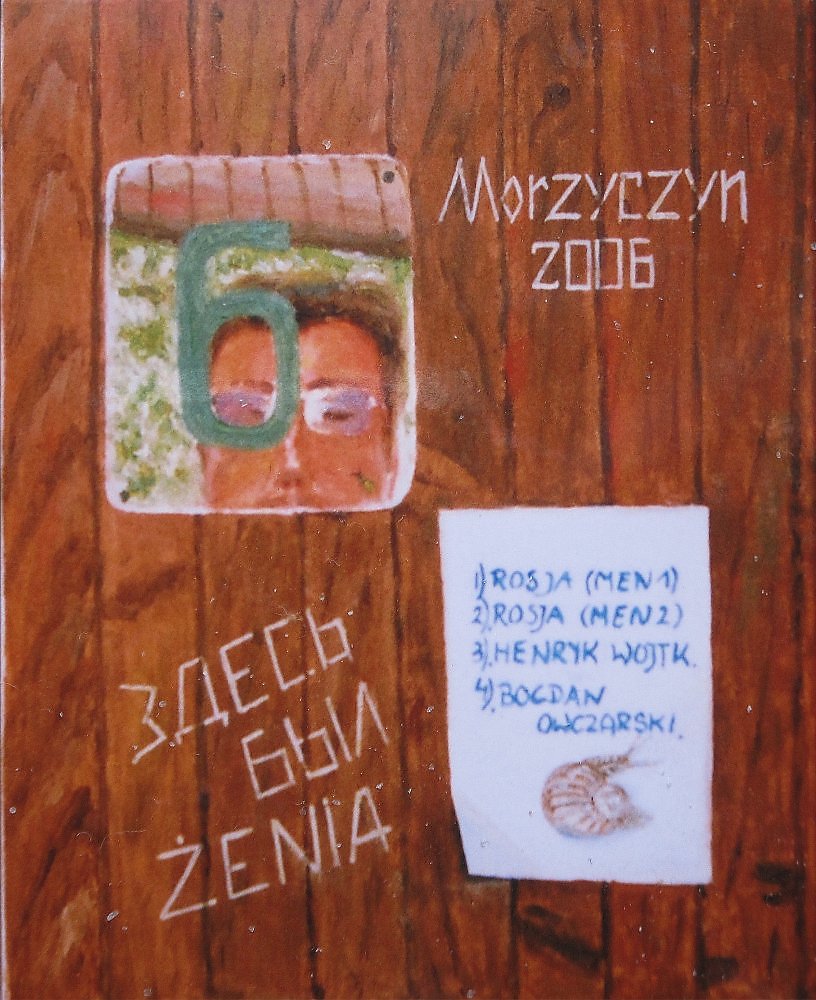 6
Morzyczyn
2006
1) ROSJA (MEN 1)
2) ROSJA (MEN 2)
3) HENRYK WOJTK.
4) BOGDAN
OWCZARSKI.
ЗДЕСЬ
БЫЛ
ŻENIA